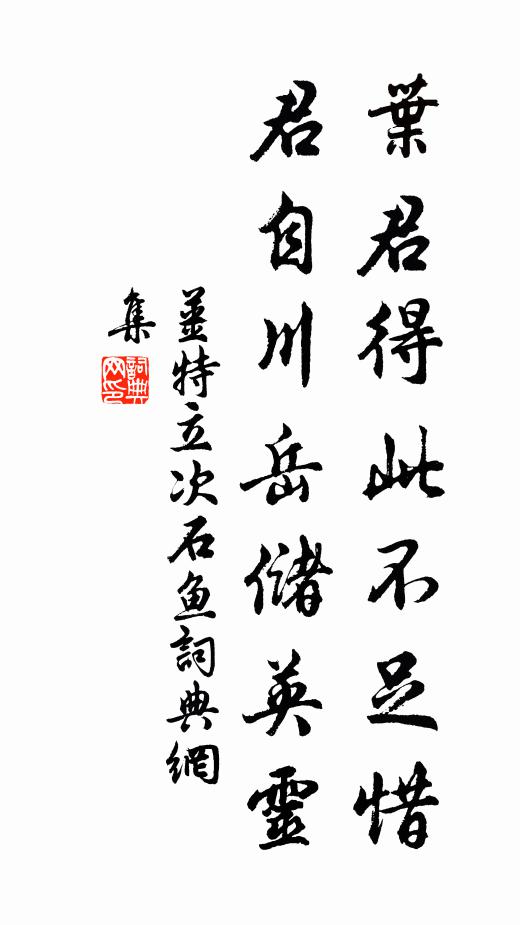 葉君得此不足惜
君自川岳儲英靈
薑特立次石魚詞典網
集
詞典
网印